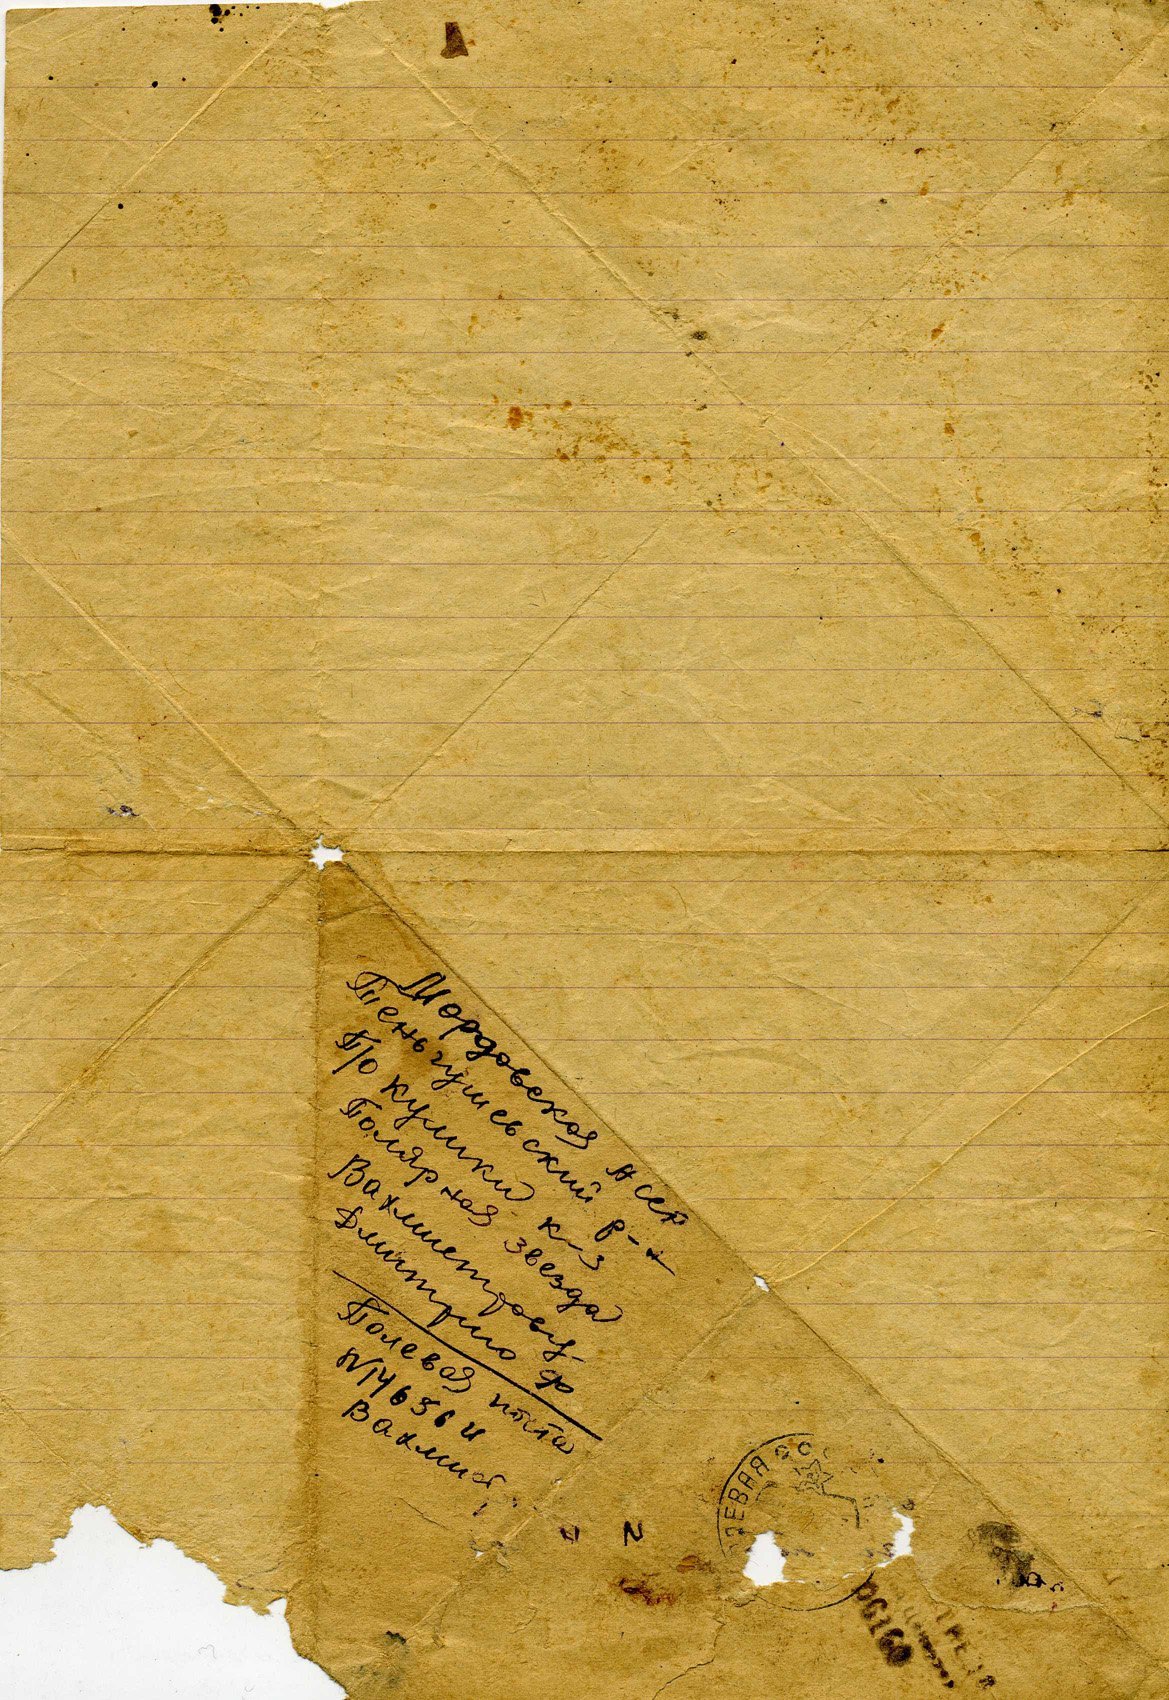 Мордовская АССР
Теньгушевский р-н
П/о Кулики к-з
Полярная звезда
Вахмистрову
Дмитрию Ф
Полевая почта
N 14656 и
Вахмист
ЕВАЯ ПОС
06160